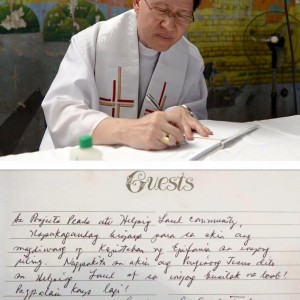 Guests
Sa Projecto Paolo at Helping Land Community,
Napakagandang biyaya para sa akin ang
magdiwang ng Kapistahan ng Epifania sa inyong
piling. Nagpakita sa akin ang Panginoong Jesus dito
sa Helping Land at sa inyong busilak na loob!
Pagpalain kayo lagi!